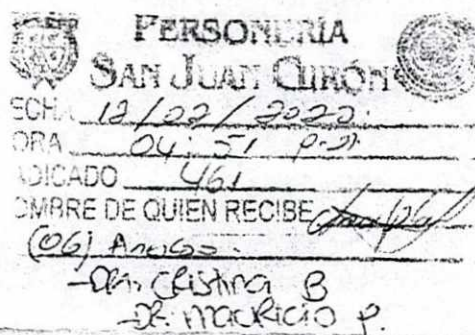 PERSONERÍA
SAN JUAN GIRÓN
ECH 12/02/2022.
ORA 04:51 p.m
ADICADO 461
OMBRE DE QUIEN RECIBE
(06) Anexos.
-Dra. Cristina B
-DR. MAURICIO P.